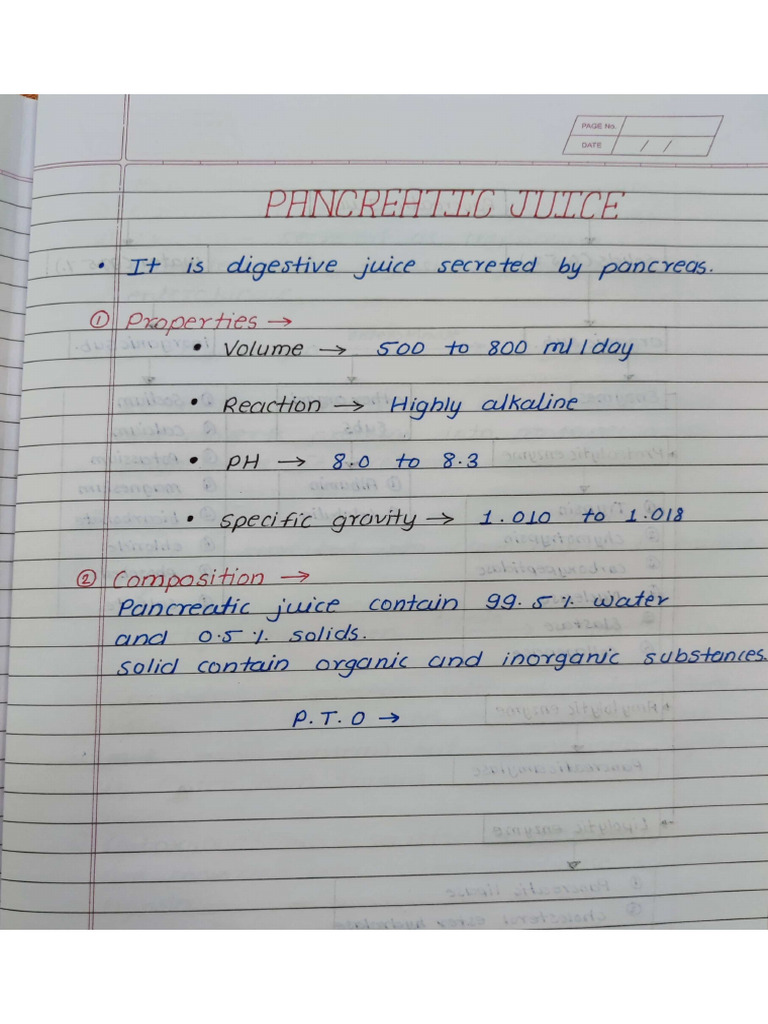 PAGE No.
DATE / /
PANCREATIC JUICE
• It is digestive juice secreted by pancreas.
① Properties →
• Volume → 500 to 800 ml / day
• Reaction → Highly alkaline
• PH → 8.0 to 8.3
• specific gravity → 1.010 to 1.018
② Composition →
Pancreatic juice contain 99.5% water
and 0.5% solids.
solid contain organic and inorganic substances.
P.T.O →